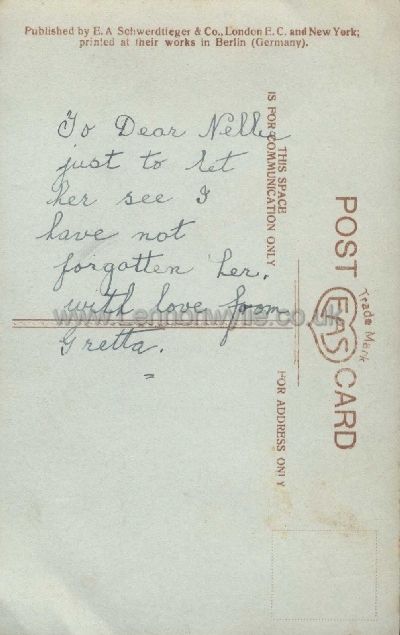 Published by E. A Schwerdtfeger & Co., London E. C. and New York;
printed at their works in Berlin (Germany).
To Dear Nellie
just to let
her see I
have not
forgotten her.
with love from
Gretta.
THIS SPACE
IS FOR COMMUNICATION ONLY
FOR ADDRESS ONLY
POST CARD
EAS
Trade Mark
www.Lennonwylie.co.uk